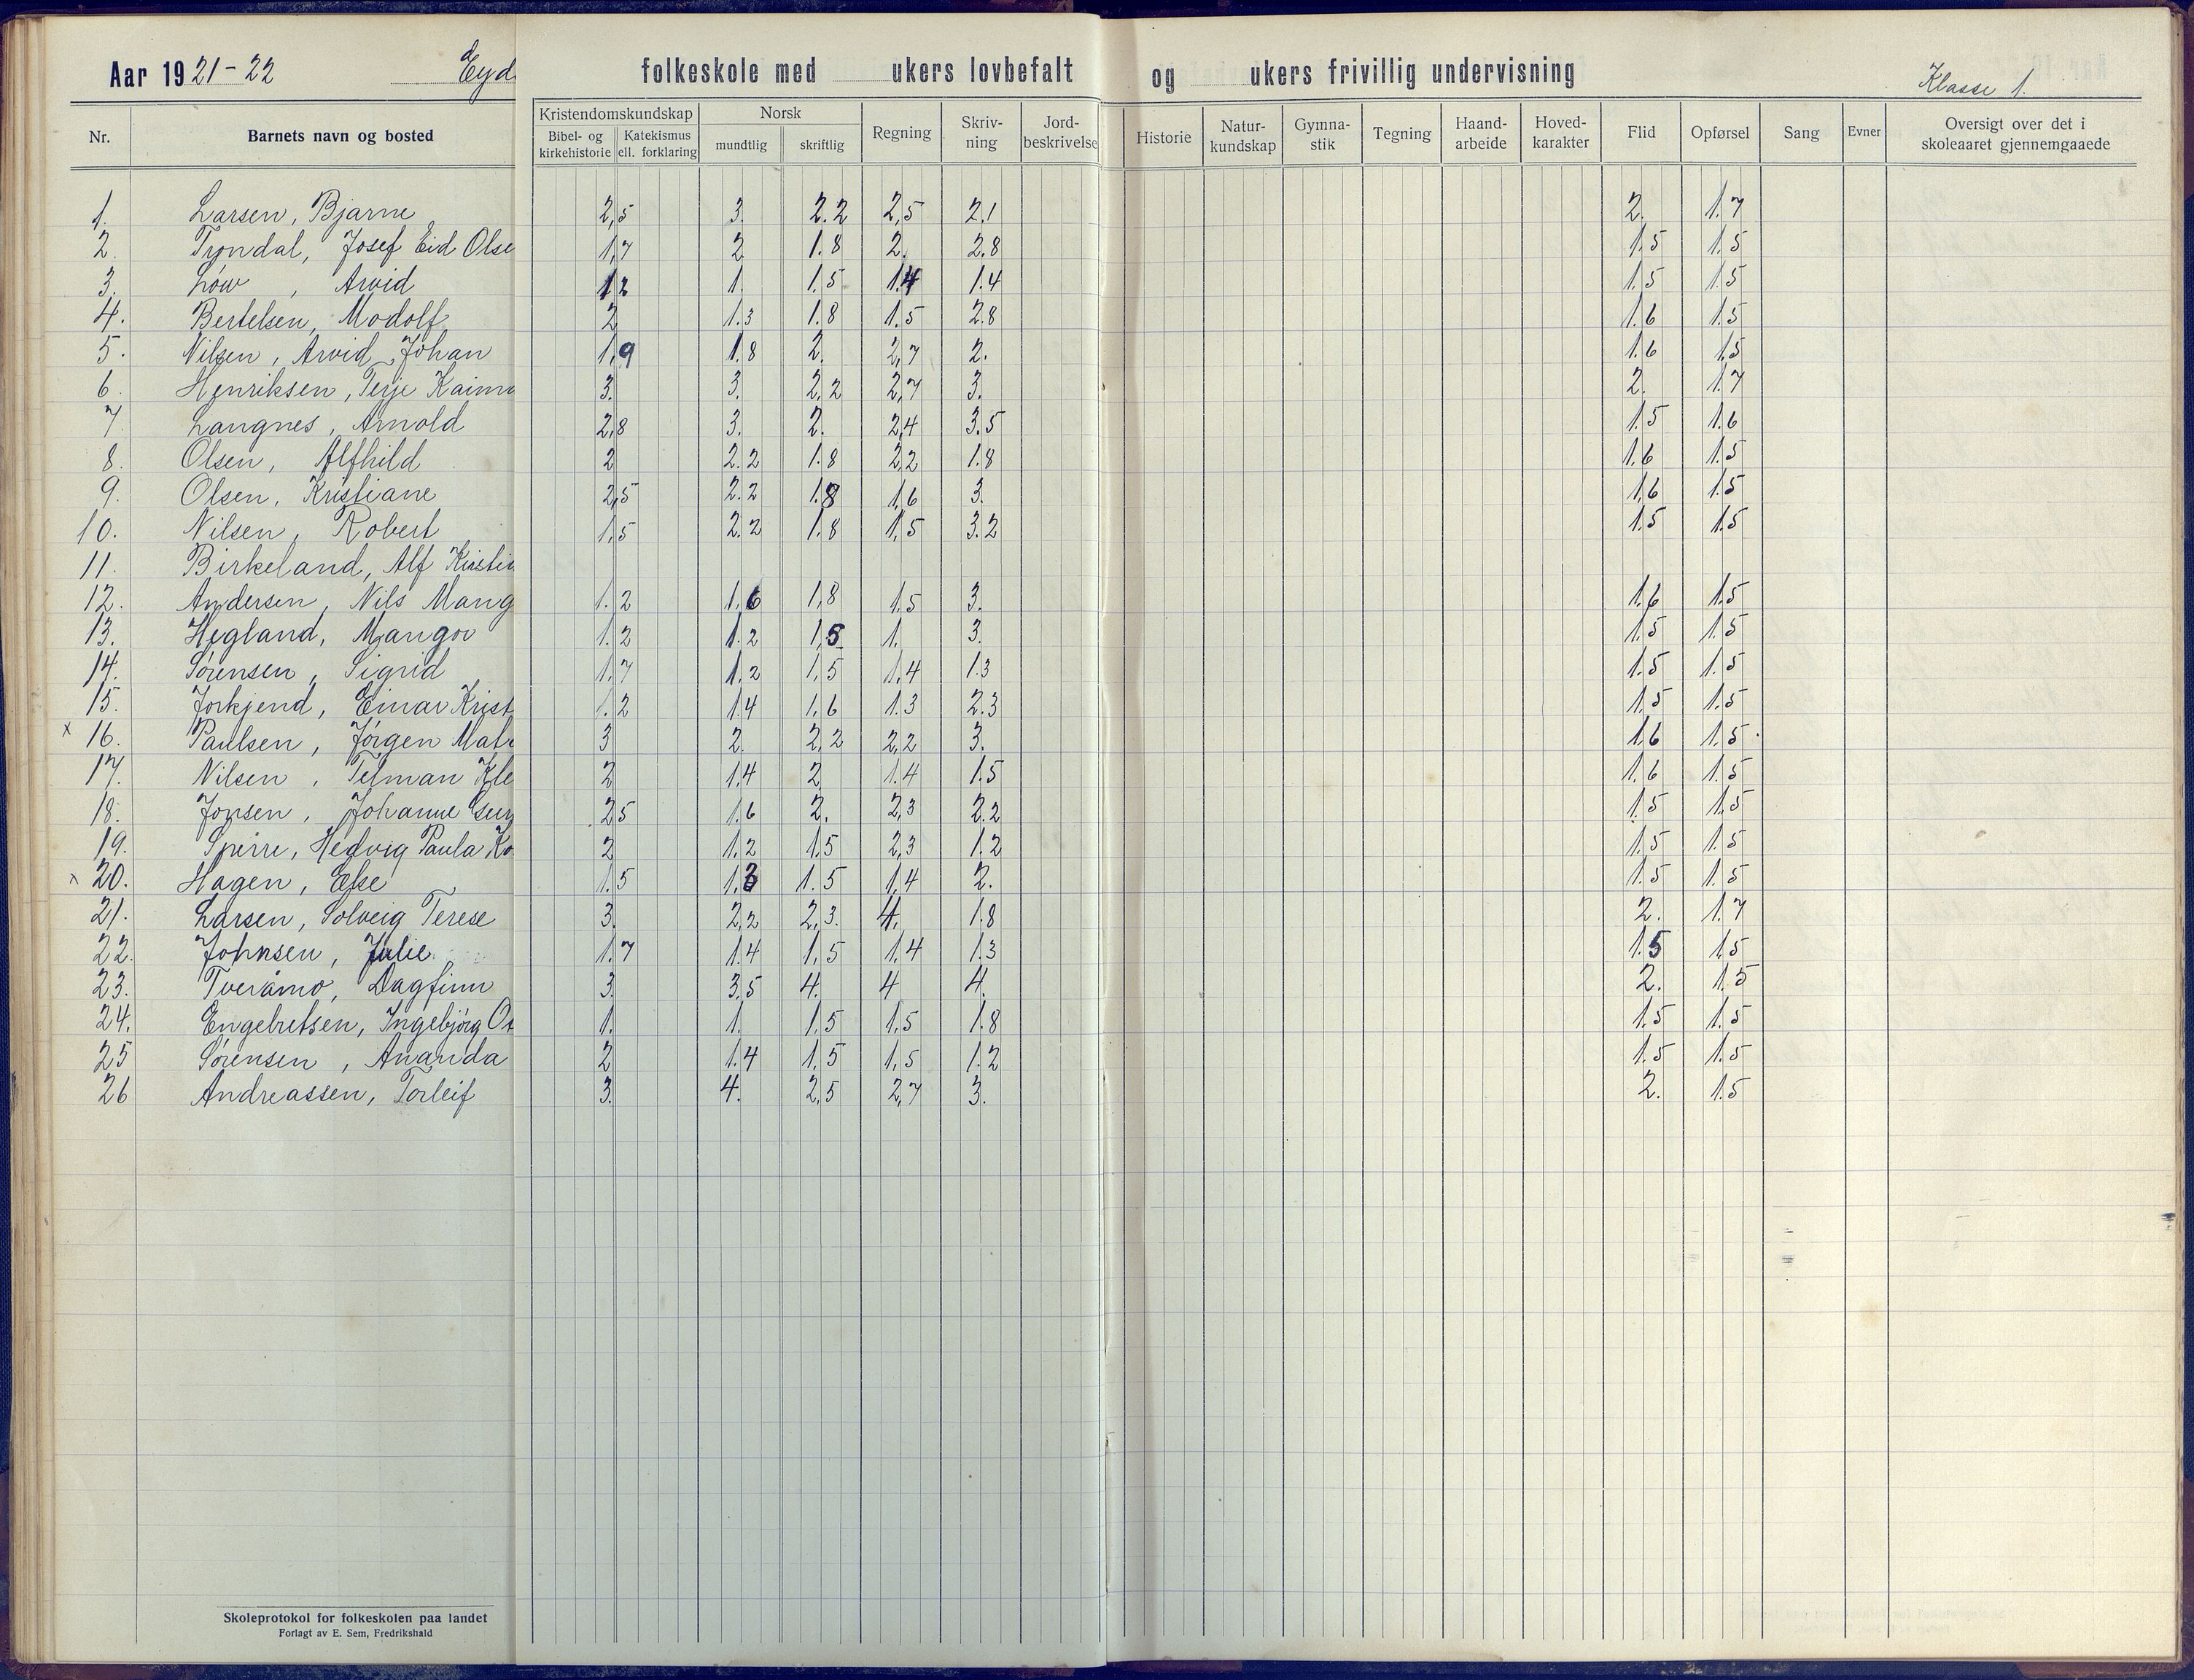 Aar 1921-22 Eyd folkeskole med ukers lovbefalt og ukers frivillig undervisning Klasse 1.
Nr. Barnets navn og bosted Kristendomskundskap Bibel- og kirkehistorie Katekismus ell. forklaring Norsk mundtlig skriftlig Regning Skriv-ning Jord-beskrivelse Historie Natur-kundskap Gymna-stik Tegning Haand-arbeide Hoved-karakter Flid Opførsel Sang Evner Oversigt over det i skoleaaret gjennemgaaede
1. Larsen, Bjarne 2,5 3. 2.2 2,5 2,1 2. 1.7
2. Tryndal, Josef Eid Olse 1,7 2 1.8 2. 2.8 1.5 1.5
3. Löw, Arvid 12 1. 1.5 1.4 1.4 1.5 1.5
4. Bertelsen, Modolf 2 1.3 1.8 1.5 2.8 1.6 1.5
5. Nilsen, Arvid Johan 1,9 1.8 2. 2,7 2. 1.6 1.5
6. Henriksen, Terje 3. 3. 2,2 2,7 3. 2. 1.7
7. Langnes, Arnold 2,8 3. 2. 2,4 3.5 1.5 1.6
8. Olsen, Alfhild 2 2.2 1.8 2,2 1.8 1.6 1.5
9. Olsen, Kristiane 2,5 2.2 1.8 1,6 3. 1,6 1.5
10. Nilsen, Robert 1,5 2.2 1.8 1,5 3.2 1.5 1.5
11. Birkeland, Alf Kristia
12. Andersen, Nils Mang 1.2 1.6 1,8 1.5 3. 1.6 1.5
13. Hegland, Mangor 1.2 1.2 1,5 1. 3. 1.5 1.5
14. Sörensen, Sigrid 1.7 1.2 1,5 1,4 1.3 1.5 1.5
15. Jorkjend, Einar Krist 1.2 1.4 1,6 1.3 2.3 1.5 1.5
x 16. Paulsen, Jörgen 3 2. 2,2 2,2 3. 1.6 1.5
17. Nilsen, Telman Kle 2 1.4 2 1.4 1.5 1.6 1.5
18. Jonsen, Johanne 25 1.6 2. 2,3 2.2 1.5 1.5
19. Spirre, Hedvig Paula Ko 2 1.2 1.5 2,3 1.2 1.5 1.5
x 20. Hagen, Else 1.5 1.3 1.5 1,4 2. 1.5 1.5
21. Larsen, Solveig Terese 3. 2,2 2,3. 4. 1.8 2. 1.7
22. Johnsen, Julie 1.7 1.4 1,5 1,4 1.3 1.5 1.5
23. Tveråmo, Dagfinn 3. 3,5 4. 4 4. 2. 1.5
24. Engebretsen, Ingebjörg 1. 1. 1,5 1,5 1.8 1.5 1.5
25 Sörensen, Ananda 2 1.4 1,5 1,5 1.2 1.5 1.5
26 Andreassen, Torleif 3. 4. 2,5 2,7 3. 2. 1.5
Skoleprotokol for folkeskolen paa landet
Forlagt av E. Sem, Fredrikshald